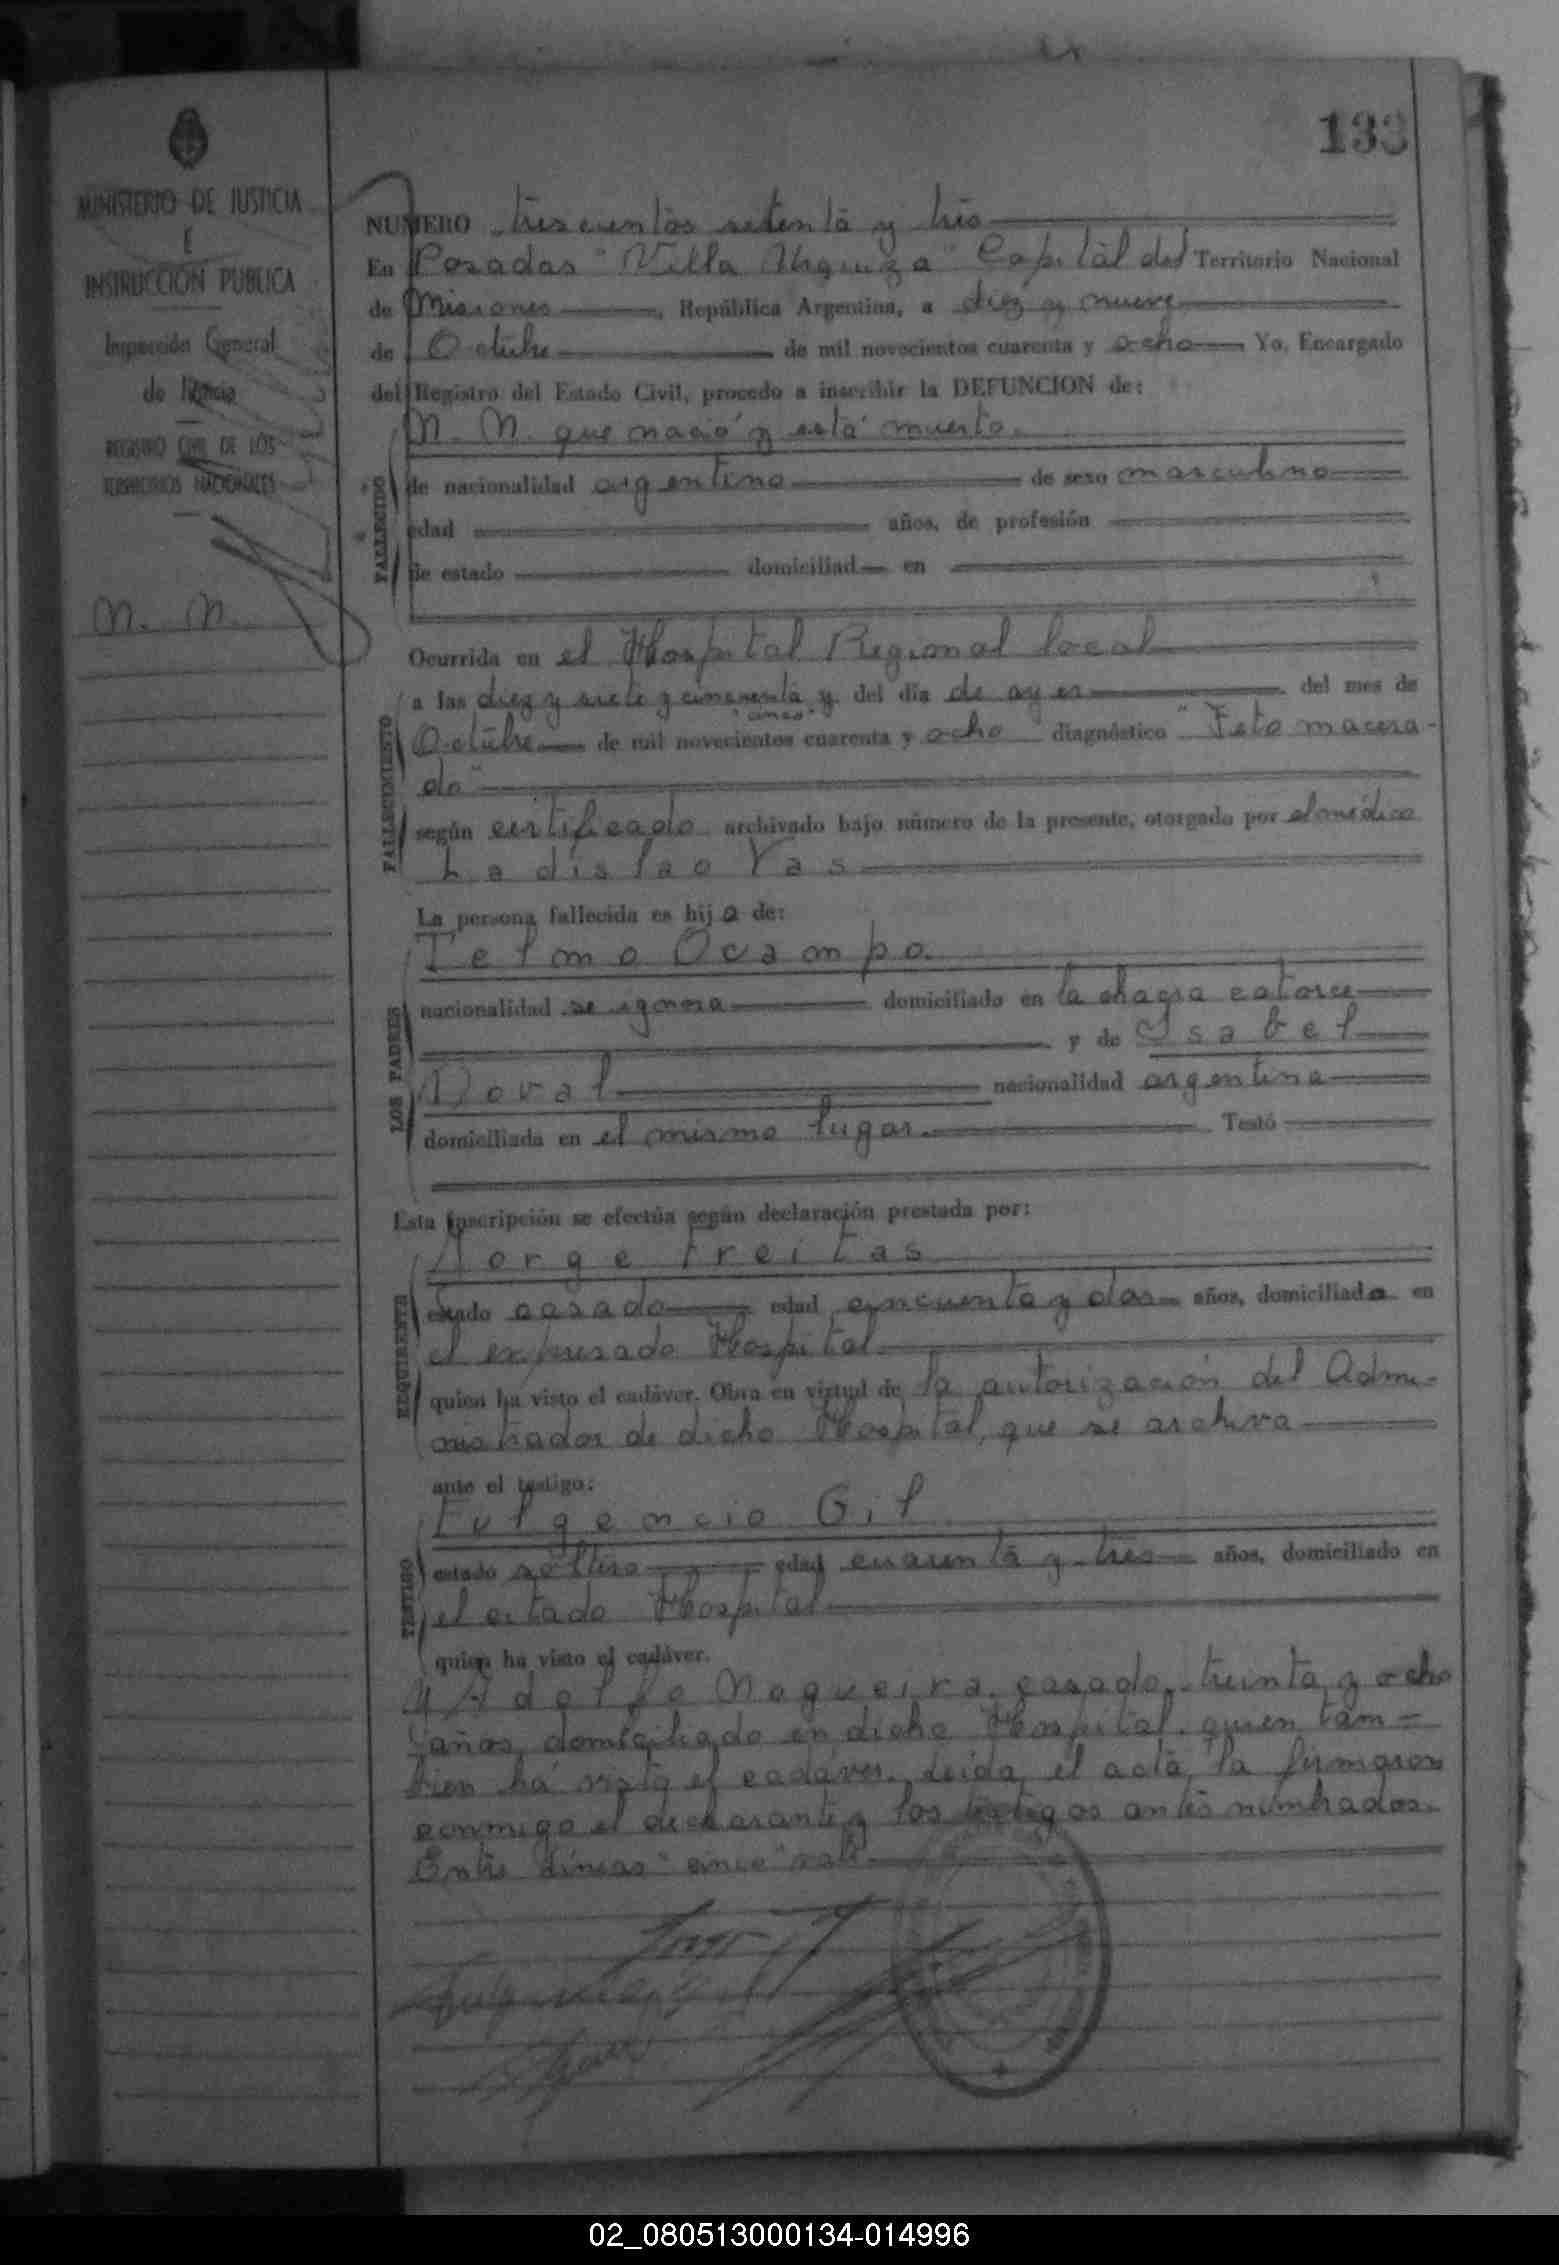 133
MINISTERIO DE JUSTICIA
E
INSTRUCCION PUBLICA
Inspección General
de Justicia
REGISTRO CIVIL DE LOS
TERRITORIOS NACIONALES
N. N.
NUMERO trescientos setenta y tres
En Posadas "Villa Urquiza" Capital del Territorio Nacional
de Misiones, República Argentina, a diez y nueve
de Octubre de mil novecientos cuarenta y ocho Yo, Encargado
del Registro del Estado Civil, procedo a inscribir la DEFUNCION de:
N. N. que nació y está muerto.
FALLECIDO
de nacionalidad argentino de sexo masculino
edad años, de profesión
de estado domiciliad en
Ocurrida en el Hospital Regional local
FALLECIMIENTO
a las diez y siete y cincuenta y del día de ayer del mes de
"cinco"
Octubre de mil novecientos cuarenta y ocho diagnóstico "Feto macera-
do"
según certificado archivado bajo número de la presente, otorgado por el médico
Ladislao Yas
La persona fallecida es hijo de:
LOS PADRES
Telmo Ocampo.
nacionalidad se ignora domiciliado en la chacra catorce
y de Isabel
Doval nacionalidad argentina
domiciliada en el mismo lugar. Testó
Esta inscripción se efectúa según declaración prestada por:
REQUIRENTE
Jorge Freitas
estado casado edad cincuenta y dos años, domiciliado en
el expresado Hospital
quien ha visto el cadáver. Obra en virtud de la autorización del Admi-
nistrador de dicho Hospital, que se archiva
ante el testigo:
TESTIGO
Fulgencio Gil
estado soltero edad cuarenta y tres años, domiciliado en
el citado Hospital
quien ha visto el cadáver.
y Adolfo Nogueira, casado, treinta y ocho
años, domiciliado en dicho Hospital, quien tam-
bien há visto el cadáver. Leida el acta, la firmaron
conmigo el declarante y los testigos antes nombrados.
Entre líneas "cinco" vale
02_080513000134-014996